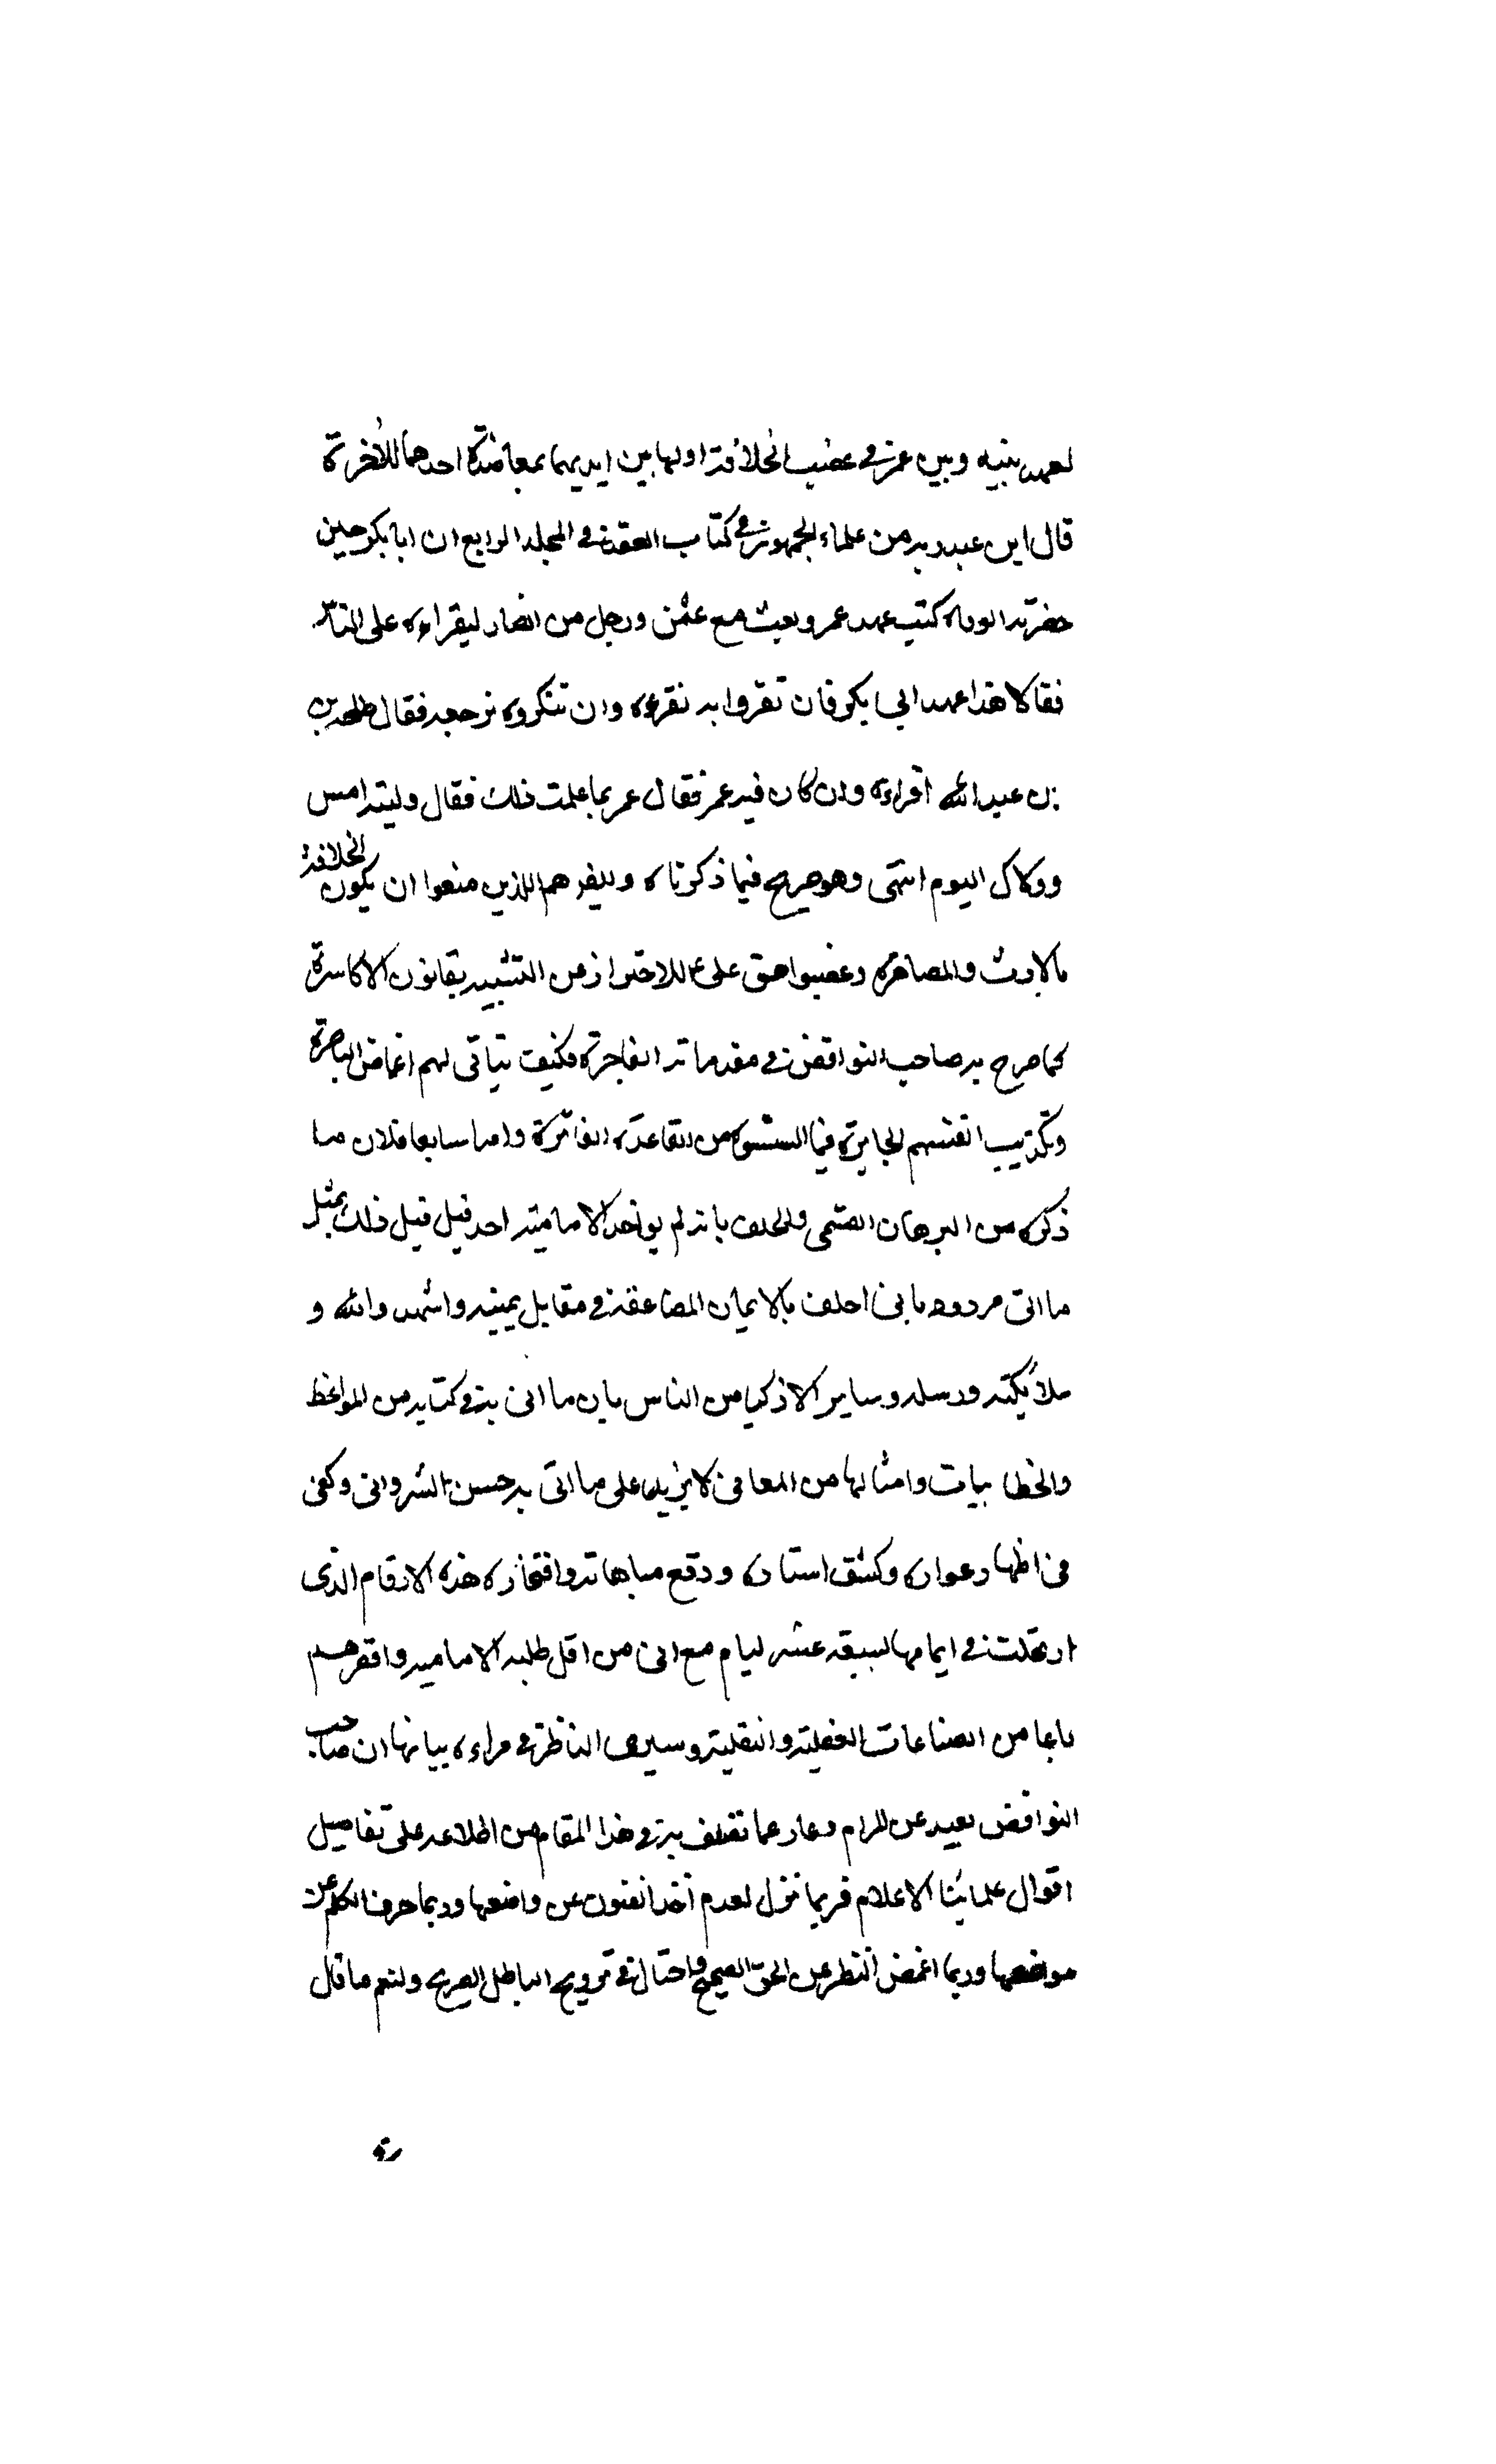 لعهد بينه وبين عمر في غصب الخلافة اولها بين ايديهما بمعاضدة احدهما للاخرة
قال ابن عبد ربه من علماء الجمهور في كتاب العقد في المجلد الرابع ان ابا بكر حين
حضرته الوفاة كتب عهد عمر وبعث مع عثمن ورجل من انصار ليقراءه على الناس
فقالا هذا عهد ابي بكر فان تقروا به نقرءه وان تنكروه نرجعه فقال طلحة بن
بن عبد الله اقراءه وان كان فيه عمر فقال عمر بما علمت ذلك فقال وليته امس
وولاك اليوم انتهى وهو صريح فيما ذكرناه وايضا هم الذين منعوا ان يكون الخلافة
بالارث والمصاهرة وغصبوا حق على ع للاحتراز عن التشبيه بقانون الاكاسرة
كما صرح به صاحب النواقض في مقدماته الفاجرة فكيف يتاتى لهم اغماض الباصرة
وتكذيب انفسهم الجايرة فيما اسسوه من القاعدة الفاترة واما سابعا فلان ما
ذكره من البرهان القسمي والحلف بانه لم يواخذ الامامية احد قبل قبل ذلك بمثل
ما اتى مردود بانى احلف بالايمان المضاعفة في مقابل يمينه واشهد والله و
ملائكته ورسله وساير الاذكيا من الناس بان ما اتى به في كتابه من المواعظ
والخطابيات وامثالها من المعانى لا يزيد على ما اتى به حسن الشروانى وكفى
فى اظهار عواره وكشف استاره ودفع مباهاته وافتخاره هذه الارقام الذى
ارتجلت في ايامها لسبعة عشر ليام مع انى من اقل طلبه الامامية واقصرهم
باعا من الصناعات العقلية والنقلية وسيرى الناظر في مراءه بيانها ان صاحب
النواقض بعيد عن المرام وعار عما تفلف به في هذا المقام من اطلاعه على تفاصيل
اقوال علمائنا الاعلام فربما نزل لعدم اخذ الفنون عن واضعها وربما حرف الكلم عن
مواضعها وربما اغمض النظر عن الحق الصحيح واحتال في ترويج الباطل الصريح ولنعم ما قال